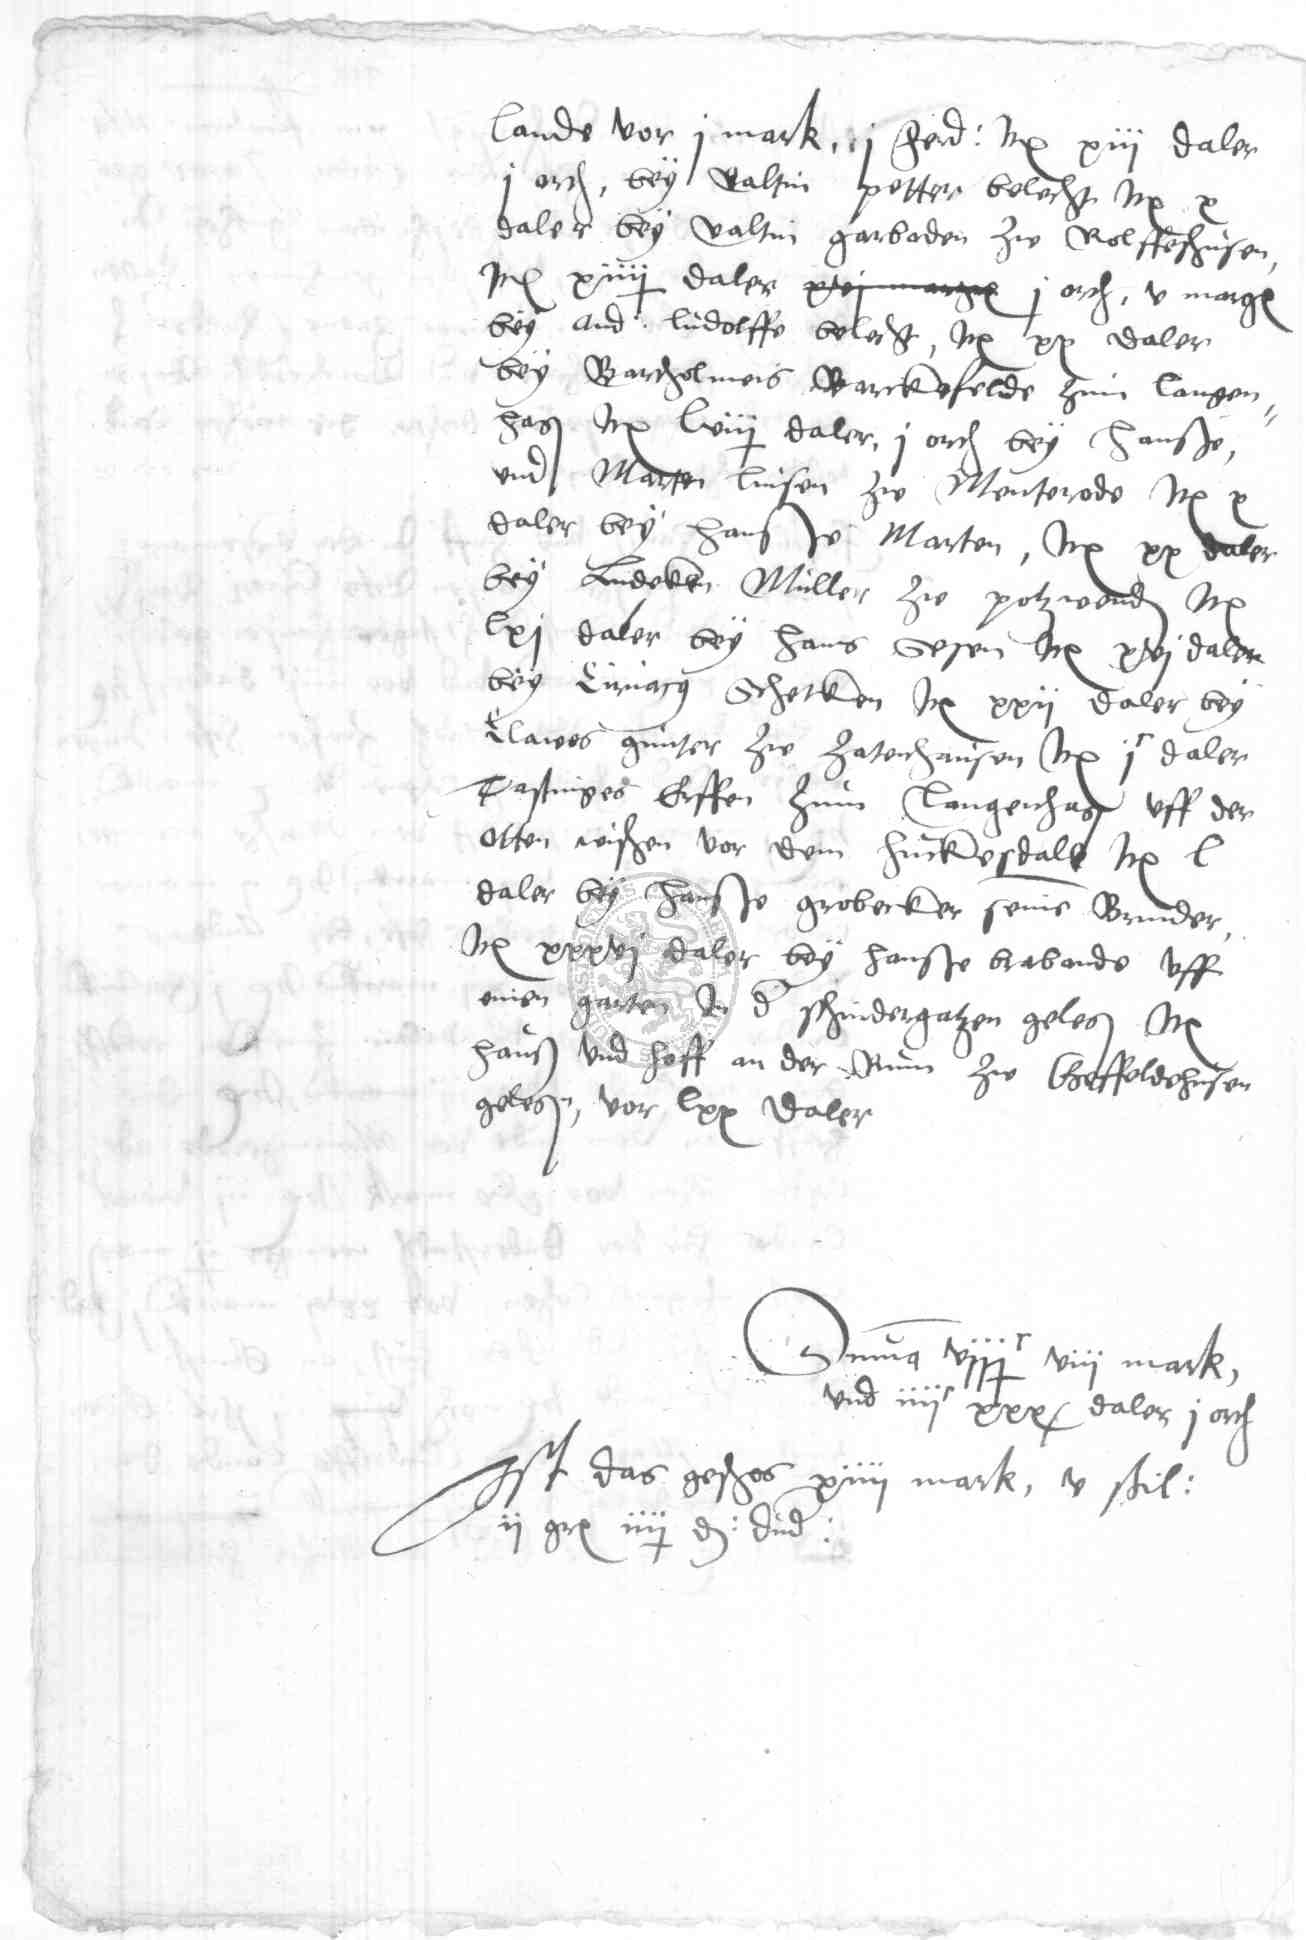 lande vor j mark, j ferd: Itē xiij daler
j orth, bey valtin potter belecht Itē x
daler bey valtin garboden zw Rolffeshusen,
Itē xiiij daler j orth, v marg
bey And. ludolffe belecht, Itē xx daler
bey Bartholmeis Barckefelde zum langen„
hag Itē lviij daler, j orth bey hansse,
und Marten linsen zw Menterode Itē x
daler bey hansse Marten, Itē xx daler
bey Ludeken Müller zw potzwend Itē
lxj daler bey hans Gesen Itē xvj daler
bey Ciriacy Schetken Itē xxij daler bey
Clawes gunter zw hausen Itē jᶜ daler
Erffen zum Langenhag uff der
Otten wissen vor dem huckesdale Itē l
daler bey hansse grobecker seins Bruder,
Itē xxxvj daler bey hansse brabande uff
einen garten In d' schindergatzen geleg Itē
hauß und hoff an der Rum zw Gheffeldehusen
geleg, vor lxx daler
Summa viij mark,
und iiijᶜ xxx daler j orth
Ist das geschos xiiij mark, v skil:
ij gr iiij d: dud: